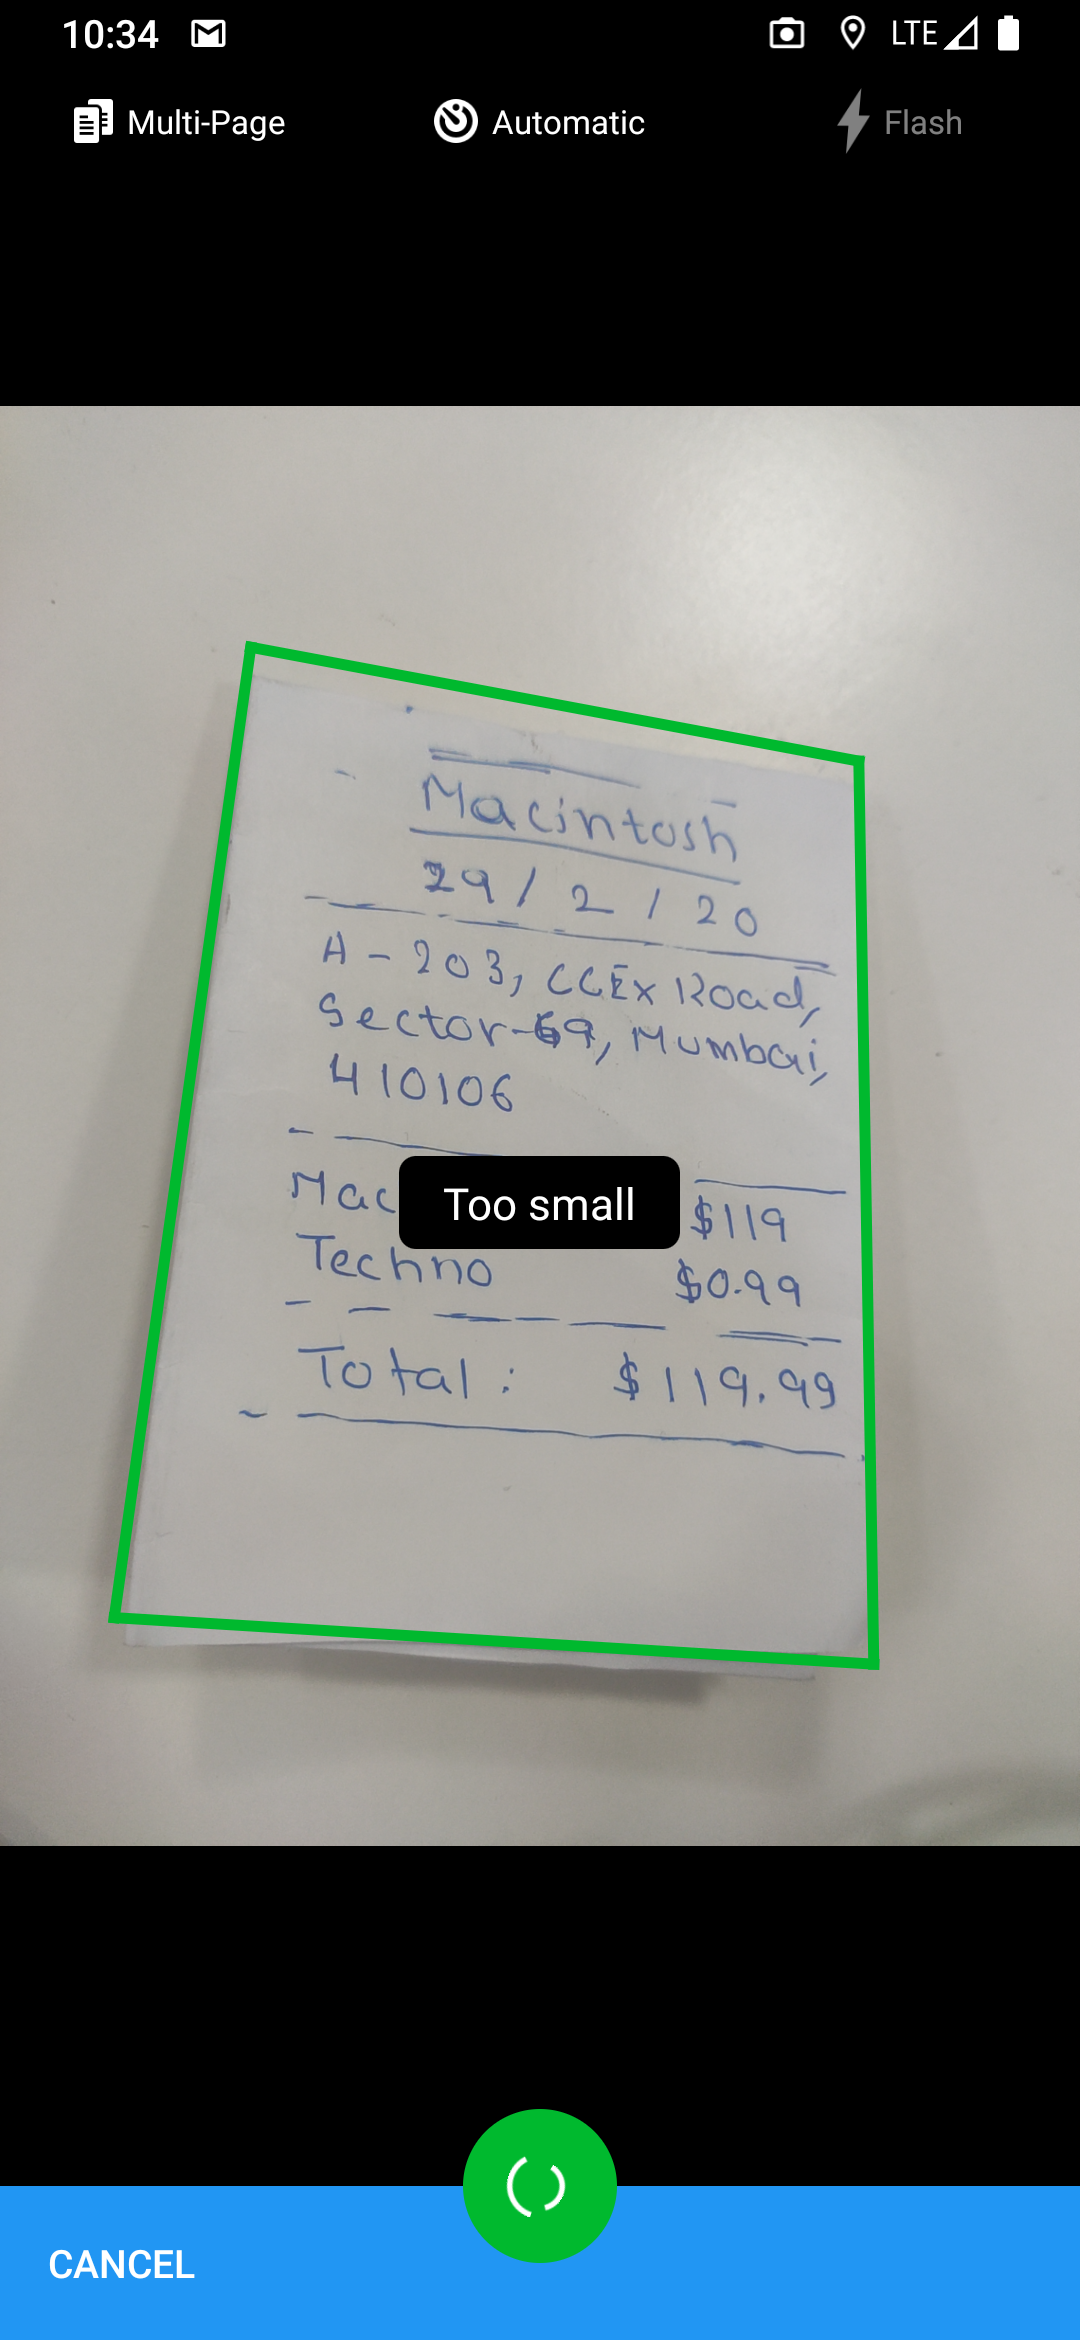 10:34 LTE
Multi-Page Automatic Flash
Macintosh
29/2/20
A-203, CCEx Road,
Sector-69, Mumbai,
410106
Mac $119
Too small
Techno $0.99
Total: $119.99
CANCEL